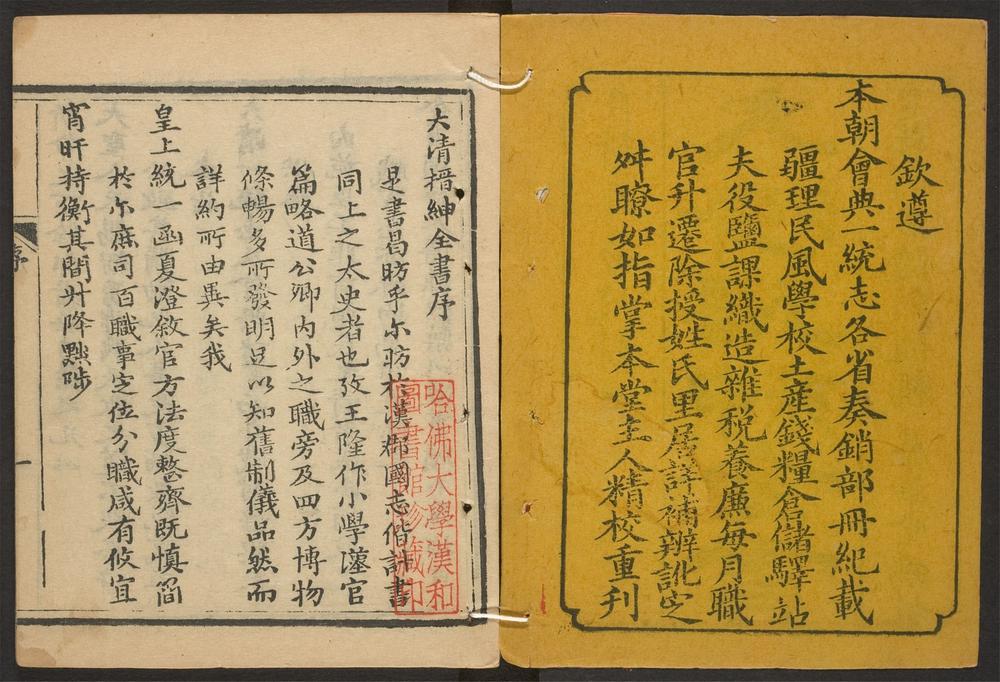 欽遵
本朝會典一統志各省奏銷部冊紀載
疆理民風學校土產錢糧倉儲驛站
夫役鹽課織造雜税養廉每月職
官升遷除授姓氏里居詳補辨訛定
舛瞭如指掌本堂主人精校重刋
大清搢紳全書序
是書昌昉乎尓昉於漢郡國志偕計書
同上之太史者也攷王隆作小學漢官
篇略道公卿内外之職旁及四方博物
條暢多所發明足以知舊制儀品然而
詳約所由異矣我
皇上統一函夏澄敘官方法度整齊既慎簡
於尓庶司百職事定位分職咸有攸宜
宵旰持衡其間升降黜陟
序
一
哈佛大學漢和
圖書館珍藏印